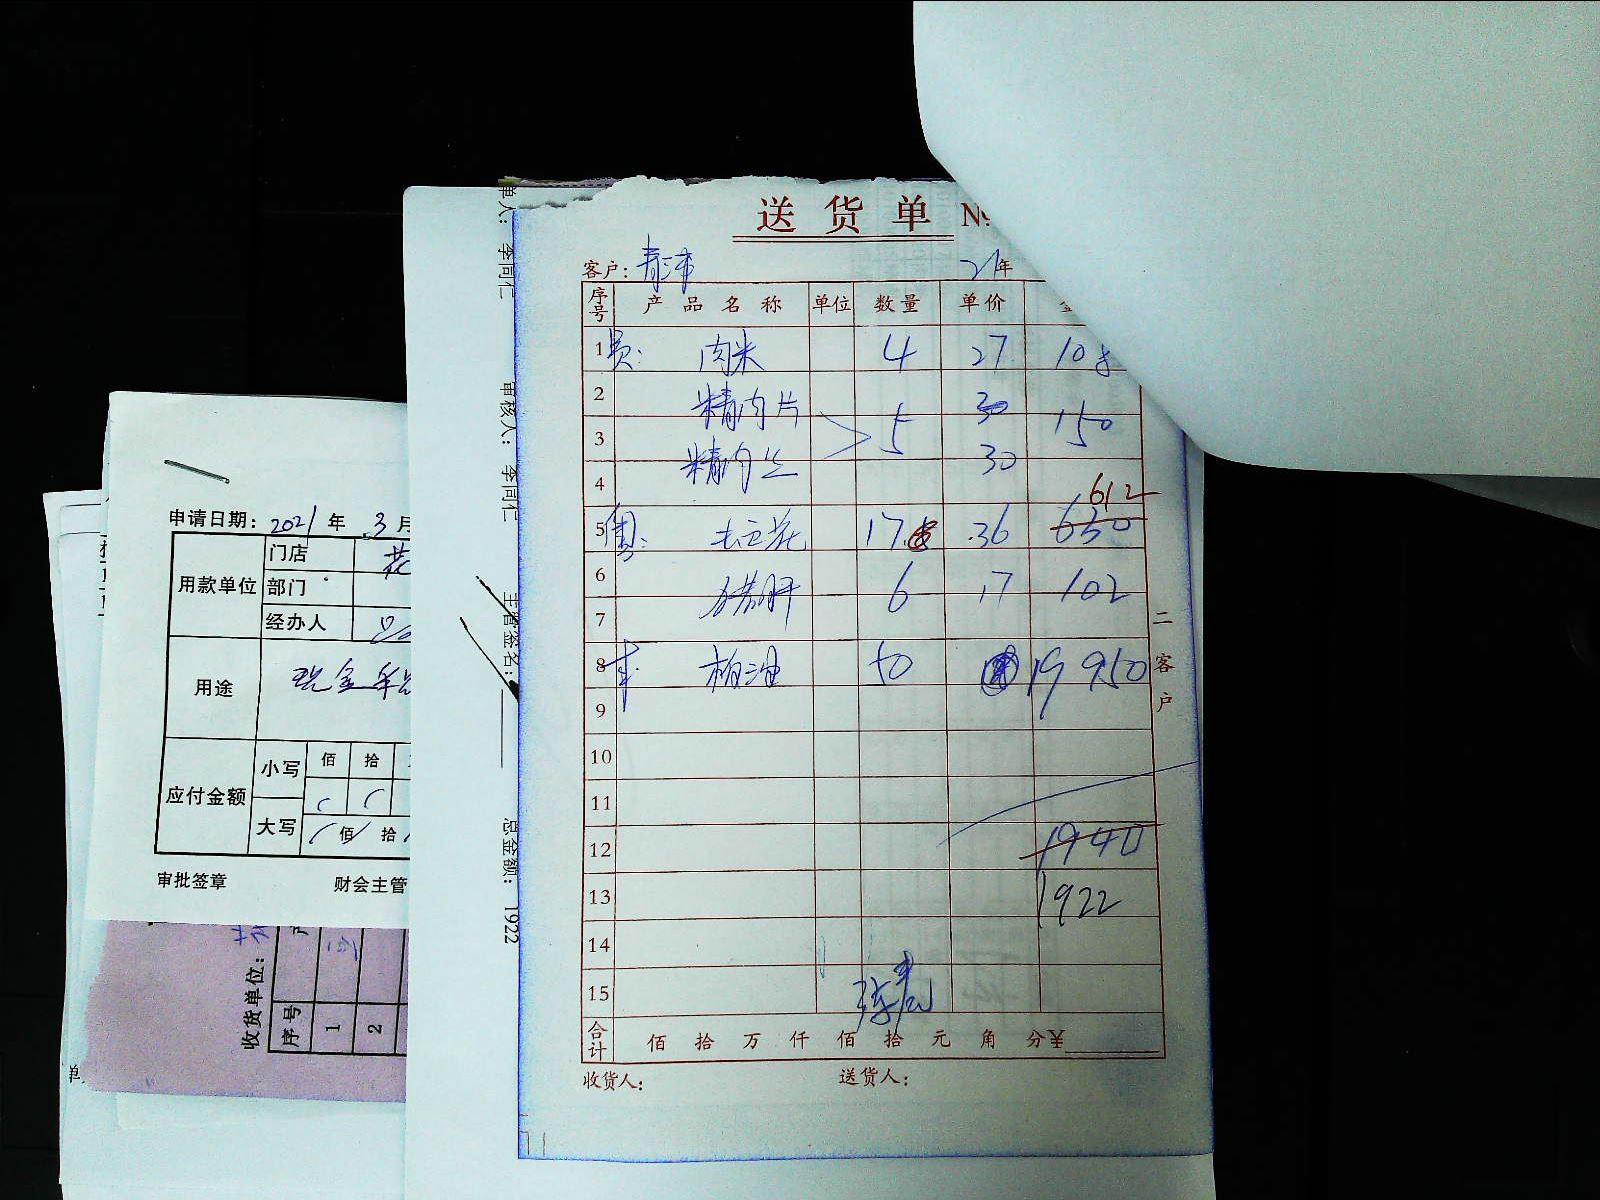 送货单 №
客户：
21年
序号 产品名称 单位 数量 单价
1 员: 肉米 4 27 108
2 精肉片 30
3 5 150
精肉丝 30
4
612
5 周: 17.5 36 630
6 猪肝 6 17 102
7
8 柏油 50 19 950
9
10
11
12 1940
13 1922
14
15
合计 佰 拾 万 仟 佰 拾 元 角 分¥
收货人: 送货人:
二 客户
单人: 李同仁
审核人: 李同仁
主管签名:
总金额: 1922
申请日期: 2021 年 3 月
用款单位 门店
部门
经办人
用途
应付金额 小写 佰 拾
大写 佰 拾
审批签章 财会主管
收货单位:
序号 1 2